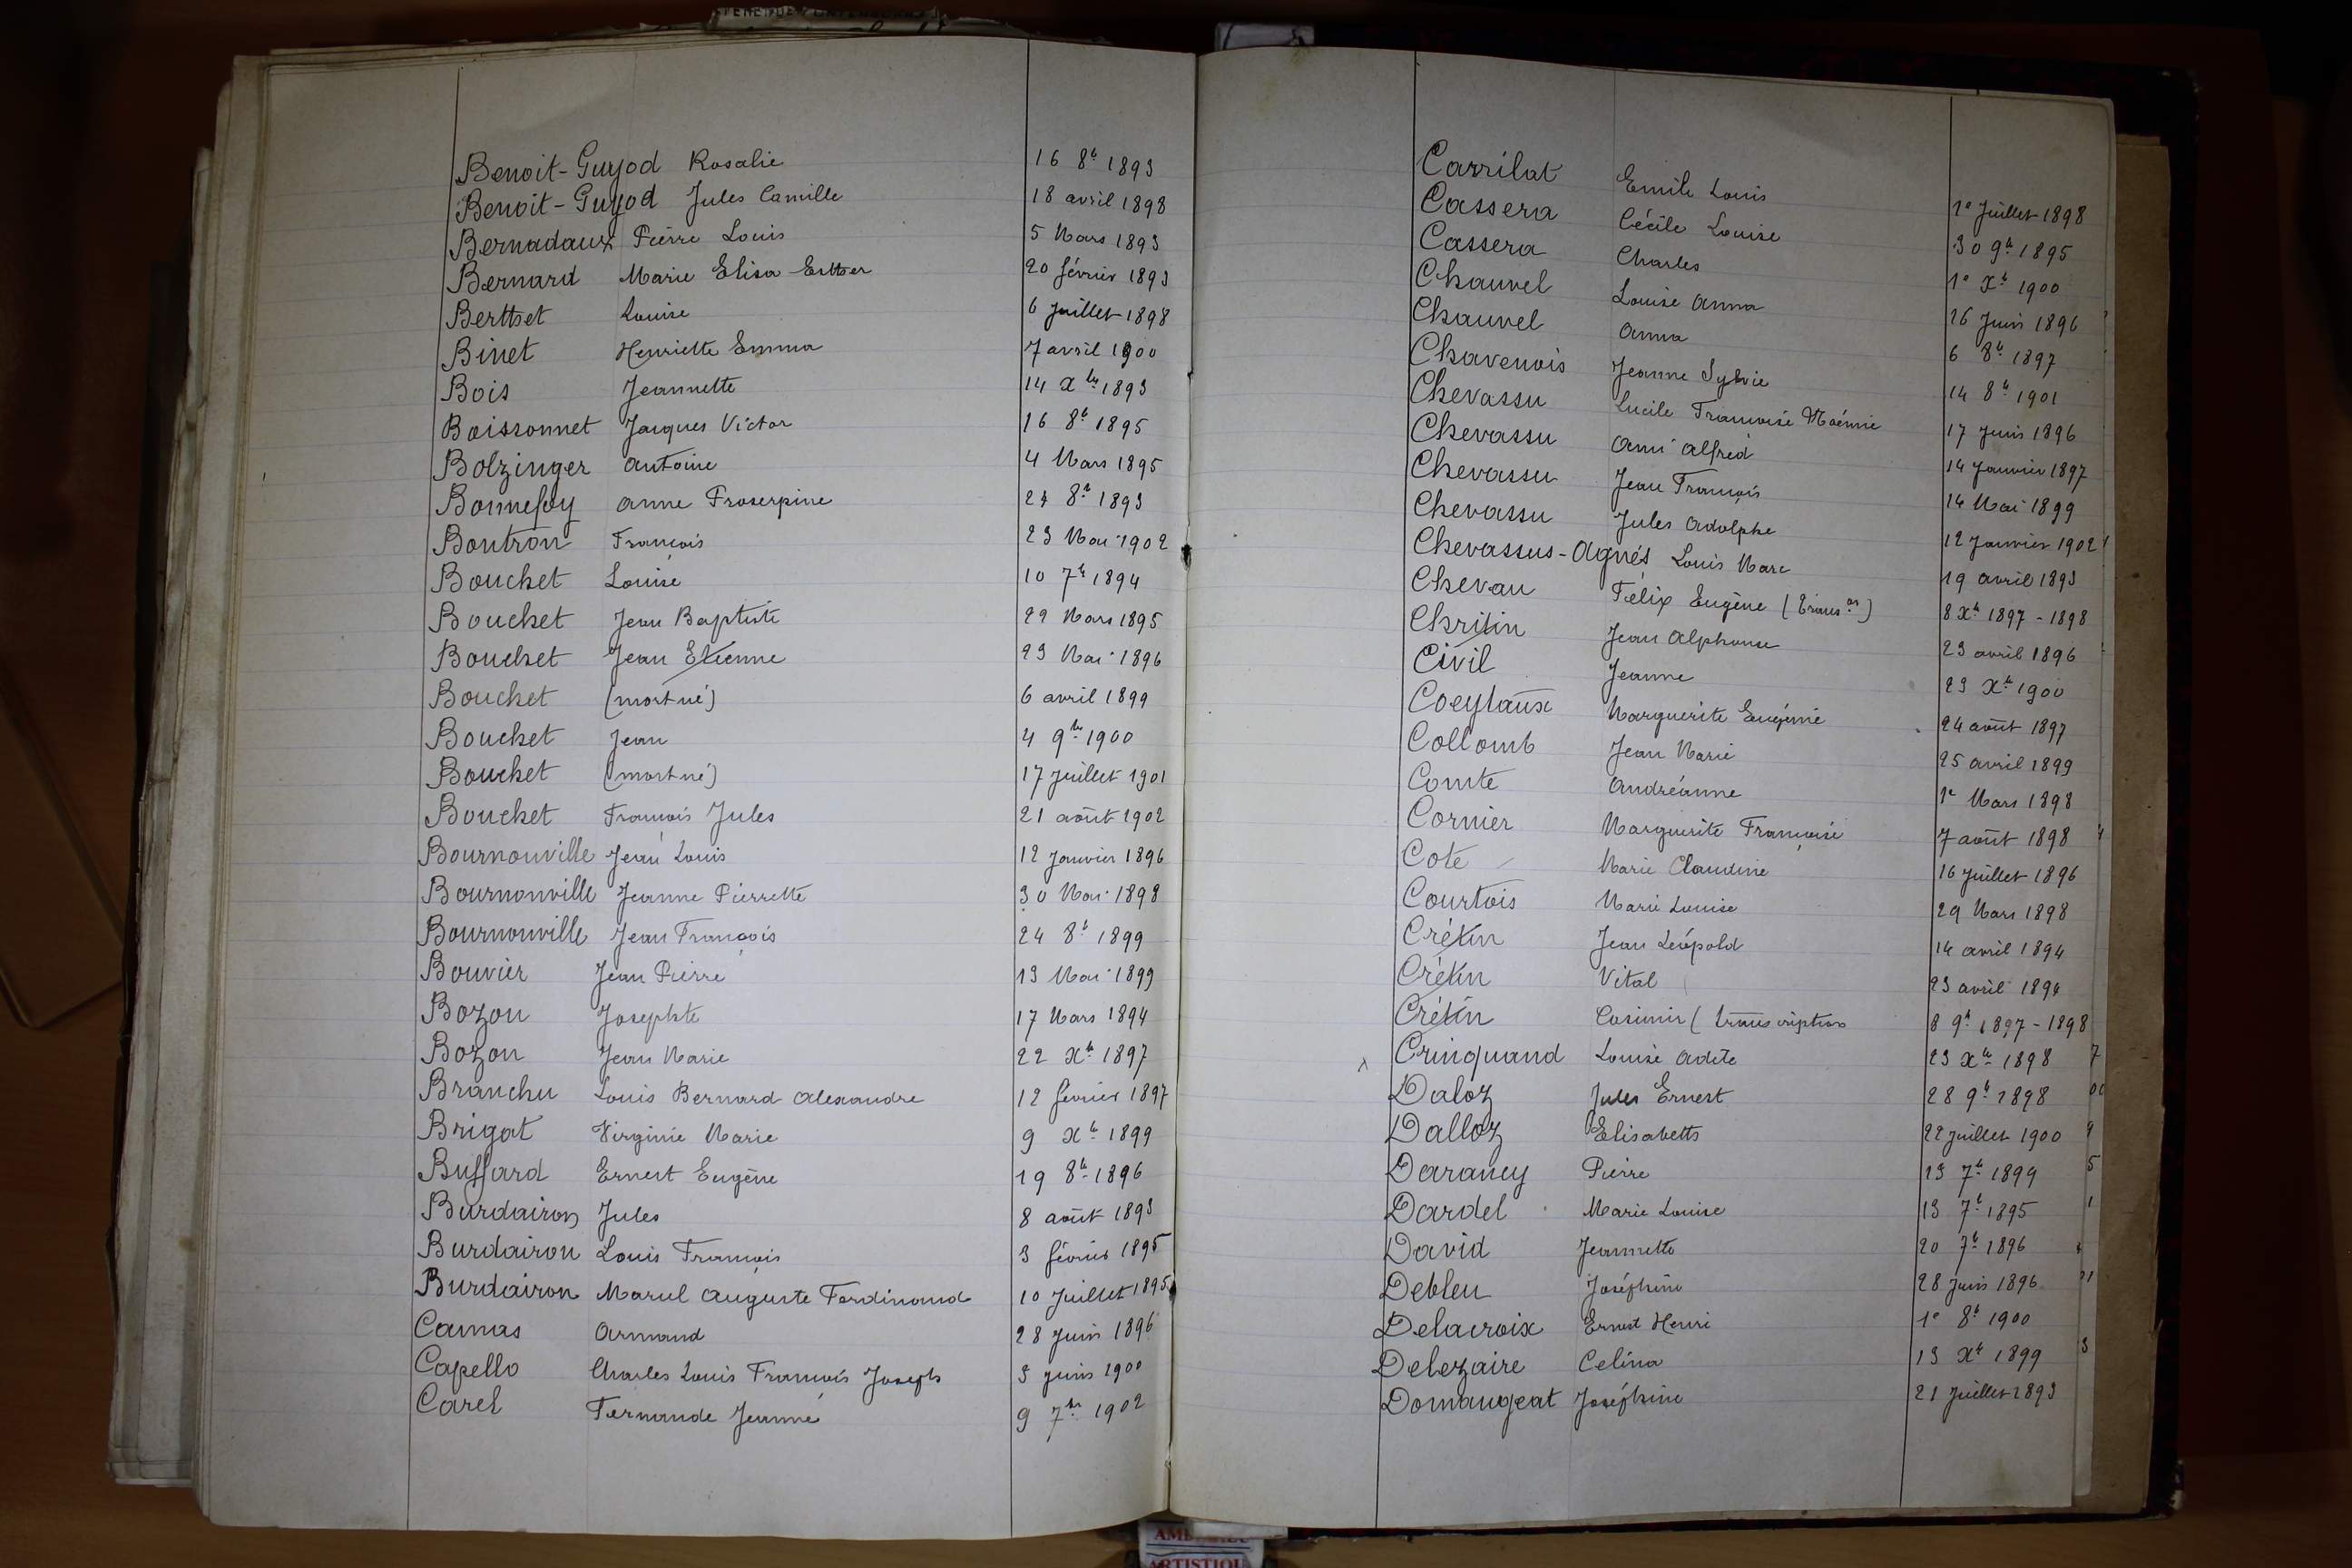 Benoit-Guyod Rosalie 16 8b 1893
Benoit-Guyod Jules Camille 18 avril 1898
Bernadaux Pierre Louis 5 Mars 1893
Bernard Marie Elisa Esther 20 février 1893
Berthet Louise 6 Juillet 1898
Binet Henriette Emma 7 avril 1900
Bois Jeannette 14 xbre 1893
Boissonnet Jacques Victor 16 8b 1895
Bolzinger Antoine 4 Mars 1895
Bonnefoy Anne Proserpine 27 8b 1893
Bontron François 23 Mai 1902
Bouchet Louise 10 7b 1894
Bouchet Jean Baptiste 22 Mars 1895
Bouchet Jean Etienne 23 Mai 1896
Bouchet (mort né) 6 avril 1899
Bouchet Jean 4 9bre 1900
Bouchet (mort né) 17 Juillet 1901
Bouchet François Jules 21 août 1902
Bournonville Jean Louis 12 Janvier 1896
Bournonville Jeanne Pierrette 30 Mai 1898
Bournonville Jean François 24 8b 1899
Bouvier Jean Pierre 13 Mai 1899
Bozon Josephte 17 Mars 1894
Bozon Jean Marie 22 xb 1897
Branchu Louis Bernard Alexandre 12 février 1897
Brigat Virginie Marie 9 xb 1899
Buffard Ernest Eugène 19 8b 1896
Burdairon Jules 8 août 1893
Burdairon Louis François 3 février 1895
Burdairon Marcel Auguste Ferdinand 10 Juillet 1895
Camas Armand 28 Juin 1896
Capello Charles Louis François Joseph 5 Juin 1900
Carel Fernande Jeanne 9 7bre 1902
Carrilat Emile Louis 1° Juillet 1898
Cassera Cécile Louise 30 9b 1895
Cassera Charles 1° xb 1900
Chauvel Louise Anna 26 Juin 1896
Chauvel Anna 6 8b 1897
Chavenois Jeanne Sylvie 14 8b 1901
Chevassu Lucile Françoise Noémie 17 Juin 1896
Chevassu Ami Alfred 14 Janvier 1897
Chevassu Jean François 14 Mai 1899
Chevassu Jules Adolphe 12 Janvier 1902
Chevassus-Agnés Louis Marc 19 avril 1893
Chevau Félix Eugène (Trans on) 8 xb 1897-1898
Chritin Jean Alphonse 23 avril 1896
Civil Jeanne 23 xb 1900
Coeytaux Marguerite Eugénie 24 août 1897
Collomb Jean Marie 25 avril 1899
Comte Andréanne 1e Mars 1898
Cornier Marguerite Françoise 7 août 1898
Cote Marie Claudine 16 Juillet 1896
Courtois Marie Louise 29 Mars 1898
Crétin Jean Léopold 14 avril 1894
Crétin Vital 23 avril 1894
Crétin Casimir (transcription 8 9b 1897-1898
Crinquand Louise Adèle 23 xbre 1898 7
Daloz Jules Ernest 28 9b 1898
Dalloz Elisabeth 22 Juillet 1900
Darancy Pierre 13 7b 1899 5
Dardel Marie Louise 13 7b 1895 1
David Jeannette 20 7b 1896
Debleu Joséphine 28 Juin 1896
Delacroix Ernest Henri 1° 8b 1900
Delezaire Celina 13 xb 1899 3
Domangeat Joséphine 21 Juillet 1893
ARTISTIQU